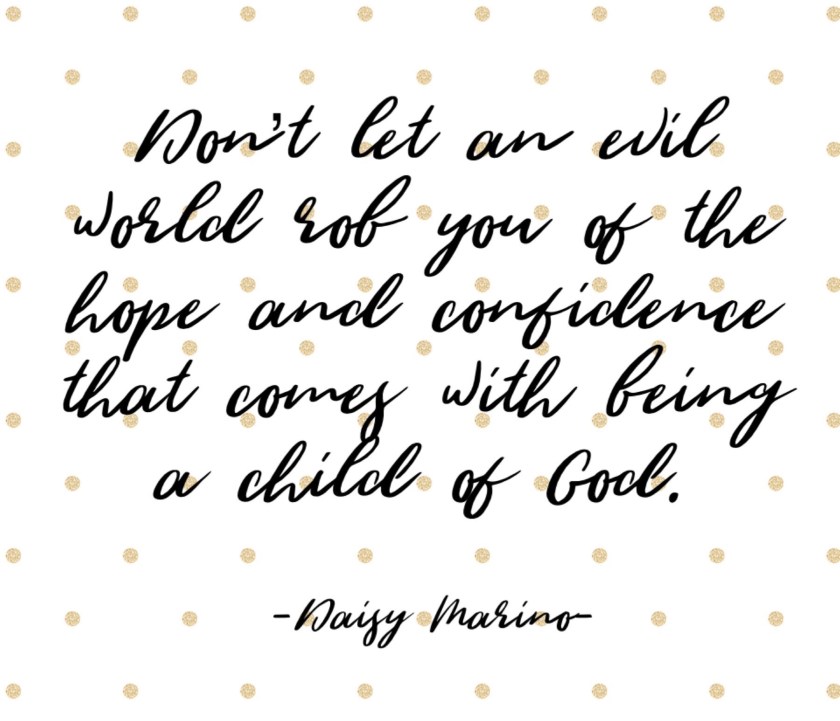 Don't let an evil
world rob you of the
hope and confidence
that comes with being
a child of God.
-Daisy Marino-